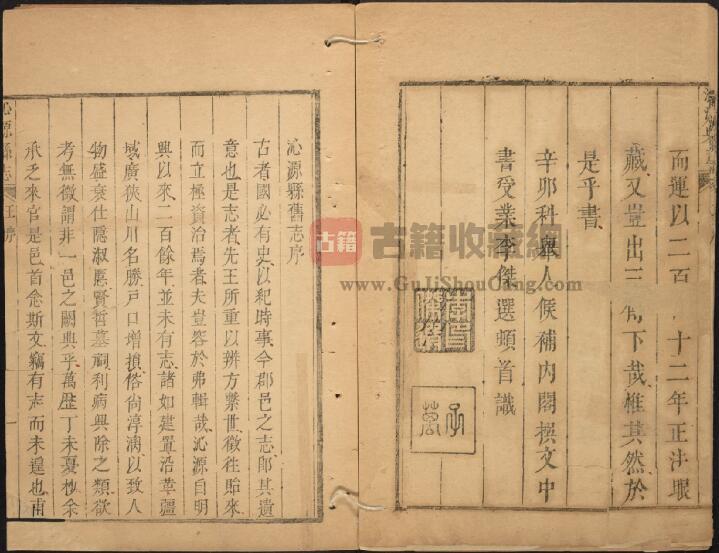 而運以二百 十二年正法眼
藏又豈出三 下哉惟其然於
是乎書
辛卯科舉人候補內閣撰文中
書受業李傑選頓首識
沁源縣舊志序
古者國必有史以紀時事今郡邑之志郎其遺
意也是志者先王所重以辨方繫世徵往貽來
而立極資治焉者夫豈容於弗輯哉沁源自明
興以來二百餘年並未有志諸如建置沿革疆
域廣狹山川名勝戸口增損俗尚淳漓以致人
物盛衰仕隱淑慝賢哲墓嗣利病興除之類欲
考無徵謂非一邑之闕典乎萬歴丁未憂杪余
承乏來官是邑首念斯文竊有志而未遑也甫
沁源縣志 王序
古籍
古籍收藏網
www.GuJiShouCang.com